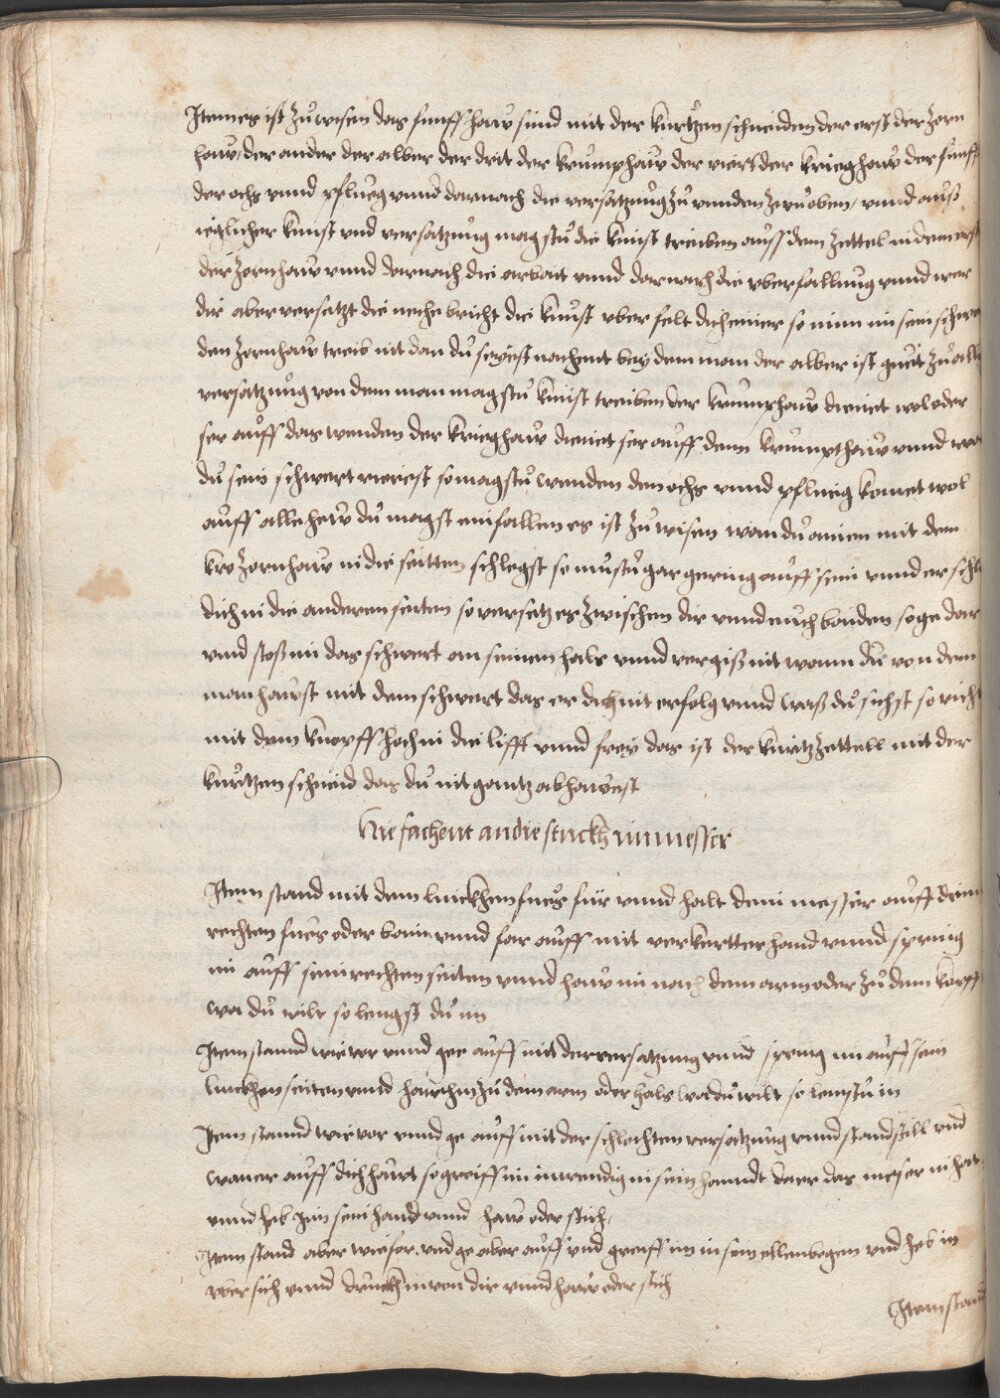 Item es ist zů wisen das funff haw sind mit der kurtzen schneiden der erst der zorn
haw der ander der alber der drit der krumphaw der viert der krieghaw der funfft
der ochs vnnd pflueg vnnd darnach die versatzung zů vnnden zwů oben vnnd auß
ieglicher kunst vnd versatzung magstu die kunst treiben auss dem zettel in dem erst
der zornhaw vnnd darnach die arbait vnnd darnach die vberfallung vnnd wer
dir aber versetzt die neche bricht die kunst vber felt dich einer so nim im sein schwe
den zornhaw treib nit dan du seyest nachent bey dem man der alber ist guet zů alle
versatzung von dem man magstu kunst treiben der krumphaw dienet wol oder
ser auff das wenden der krieghaw dienet ser auff denn krumpthaw vnnd wo
du sein schwert rierest so magstu wenden den ochs vnnd pflueg komet wol
auff alle hew du magst einfallen es ist zů wisen wan du ainen mit dem
krv zornhaw in die seitten schlegst so mustu gar gering auff sein vnnd er schl
dich in die anderen seiten so versetz es zwischen dir vnnd euch baiden so ge dar
vnnd stoß im das schwert an seinen hals vnnd vergiß nit wann du von dem
man hawst mit dem schwert das er dich nit erfolg vnnd waß du sichst so richt
mit dem knopff hoch in die lifft vnnd frey das ist der kurtz zettell mit der
kurtzen schneid das du nit gantz abhawest
Hie fachent an die stuckh im messer
Item stand mit dem linckhen fues für vnnd halt dein messer auff dein
rechten fues oder bain vnnd far auff mit verkertter hand vnnd spring
im auff sein rechten seiten vnnd haw im nach dem arm oder zů dem kopff
wa du wilt so lengst du in
Item stannd wie vor vnnd gee auff mit der versatzung vnnd spring im auff sein
linckhen seiten vnnd haw im zů dem arm oder hals wo du wilt so lempstu in
Item stannd wie vor vnnd ge auff mit der schlechten versatzung vnnd stand still vnd
wan er auff dich hawt so greiff im inwendig in sein hanndt da er das meser in hat
vnnd heb im sein hand vnnd haw oder stich
Item stand aber wie for vnd ge aber auff vnd greiff im in sein ellenbogen vnd heb in
vber sich vnnd druckh in von dir vnnd haw oder stich
Item stannd